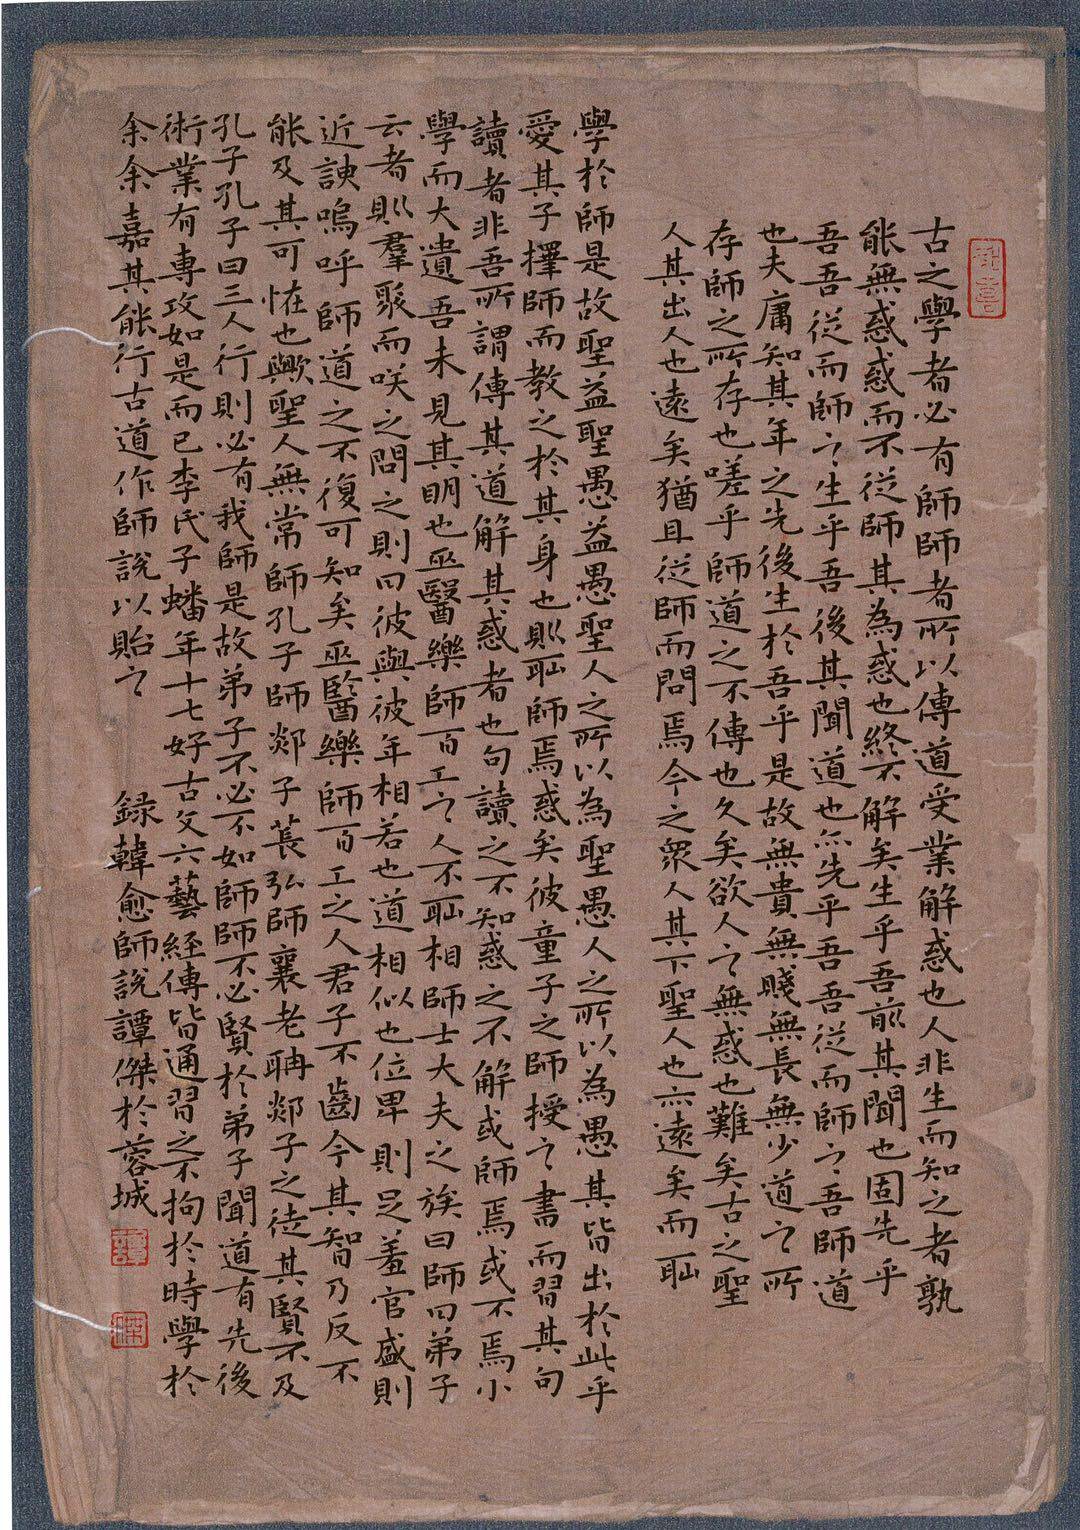 古之學者必有師師者所以傳道受業解惑也人非生而知之者孰
能無惑惑而不從師其為惑也終不解矣生乎吾前其聞也固先乎
吾吾從而師之生乎吾後其聞道也亦先乎吾吾從而師之吾師道
也夫庸知其年之先後生於吾乎是故無貴無賤無長無少道之所
存師之所存也嗟乎師道之不傳也久矣欲人之無惑也難矣古之聖
人其出人也遠矣猶且從師而問焉今之眾人其下聖人也亦遠矣而恥
學於師是故聖益聖愚益愚聖人之所以為聖愚人之所以為愚其皆出於此乎
愛其子擇師而教之於其身也則恥師焉惑矣彼童子之師授之書而習其句
讀者非吾所謂傳其道解其惑者也句讀之不知惑之不解或師焉或不焉小
學而大遺吾未見其明也巫醫樂師百工之人不恥相師士大夫之族曰師曰弟子
云者則羣聚而咲之問之則曰彼與彼年相若也道相似也位卑則足羞官盛則
近諛嗚呼師道之不復可知矣巫醫樂師百工之人君子不齒今其智乃反不
能及其可怪也歟聖人無常師孔子師郯子萇弘師襄老聃郯子之徒其賢不及
孔子孔子曰三人行則必有我師是故弟子不必不如師師不必賢於弟子聞道有先後
術業有專攻如是而已李氏子蟠年十七好古文六藝經傳皆通習之不拘於時學於
余余嘉其能行古道作師說以貽之 録韓愈師說譚傑於蓉城
譚
傑